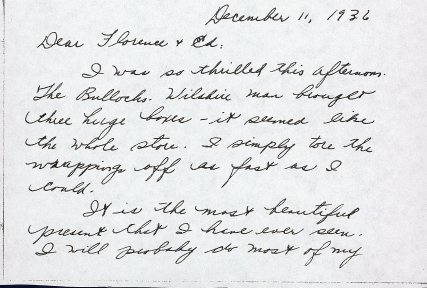 December 11, 1936
Dear Florence & Ed.
I was so thrilled this afternoon.
The Bullocks. Wilshire man brought
three huge boxes - it seemed like
the whole store. I simply tore the
wrappings off as fast as I
could.
It is the most beautiful
present that I have ever seen.
I will probaby do most of my